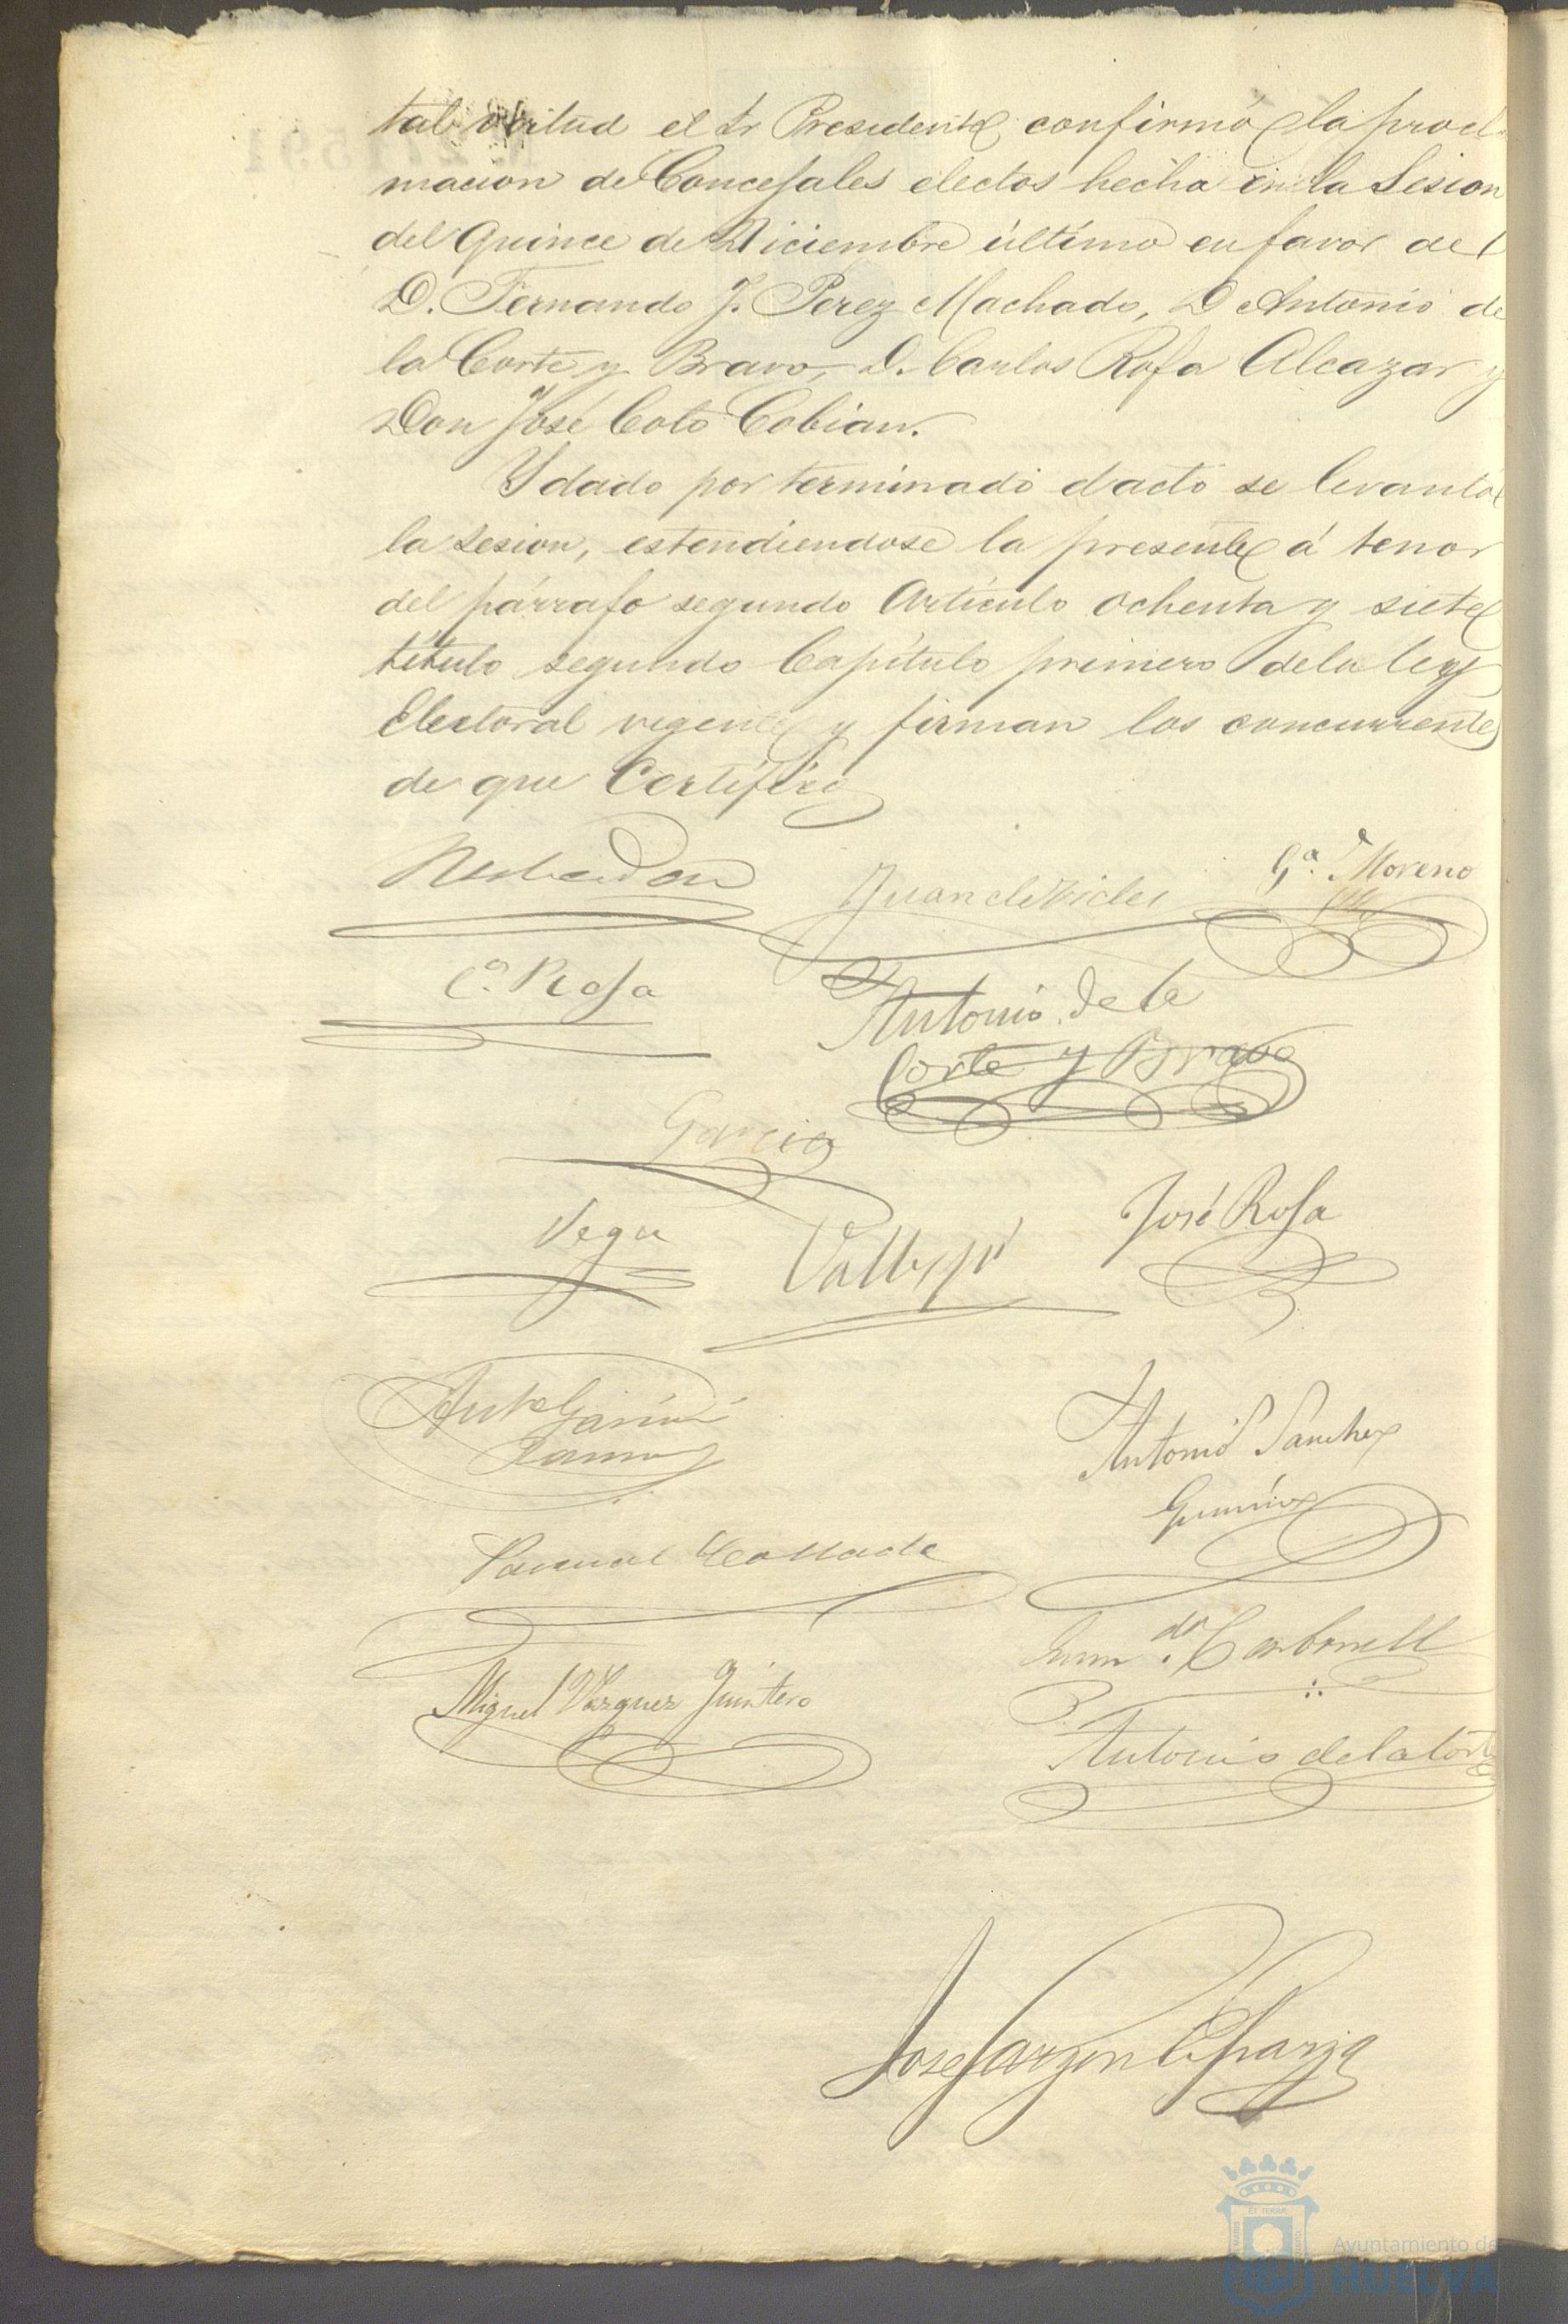 tal virtud el Sr Presidente confirmó la procl
macion de Concejales electos hecha en la Sesion
del Quince de Diciembre último en favor de
D. Fernando J. Perez Machado, D Antonio de
la Corte y Bravo, D. Carlos Rofa Alcazar y
Don José Coto Cobian.
Y dado por terminado el acto se levantó
la sesion, estendiendose la presente á tenor
del párrafo segundo Artículo ochenta y siete
título segundo Capítulo primero de la ley
Electoral vigente y firman los concurrentes
de que Certifico
Juan de Vides
Gª Moreno
C. Rofa
Antonio de la
Corte y Bravo
Garcia
Vega
José Rofa
Antº Garcia
Ramos
Antonio Sanchez
Pascual Collado
Carbonell
Miguel Vázquez Quintero
Antonio de la Corte
José Garzon Esparza
Ayuntamiento de
HUELVA